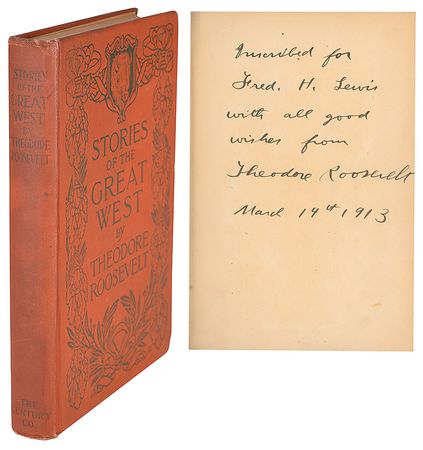 STORIES
OF THE
GREAT
WEST
BY
THEODORE
ROOSEVELT
THE
CENTURY
CO.
STORIES
OF THE
GREAT
WEST
BY
THEODORE
ROOSEVELT
Inscribed for
Fred. H. Lewis
with all good
wishes from
Theodore Roosevelt
March 14th 1913